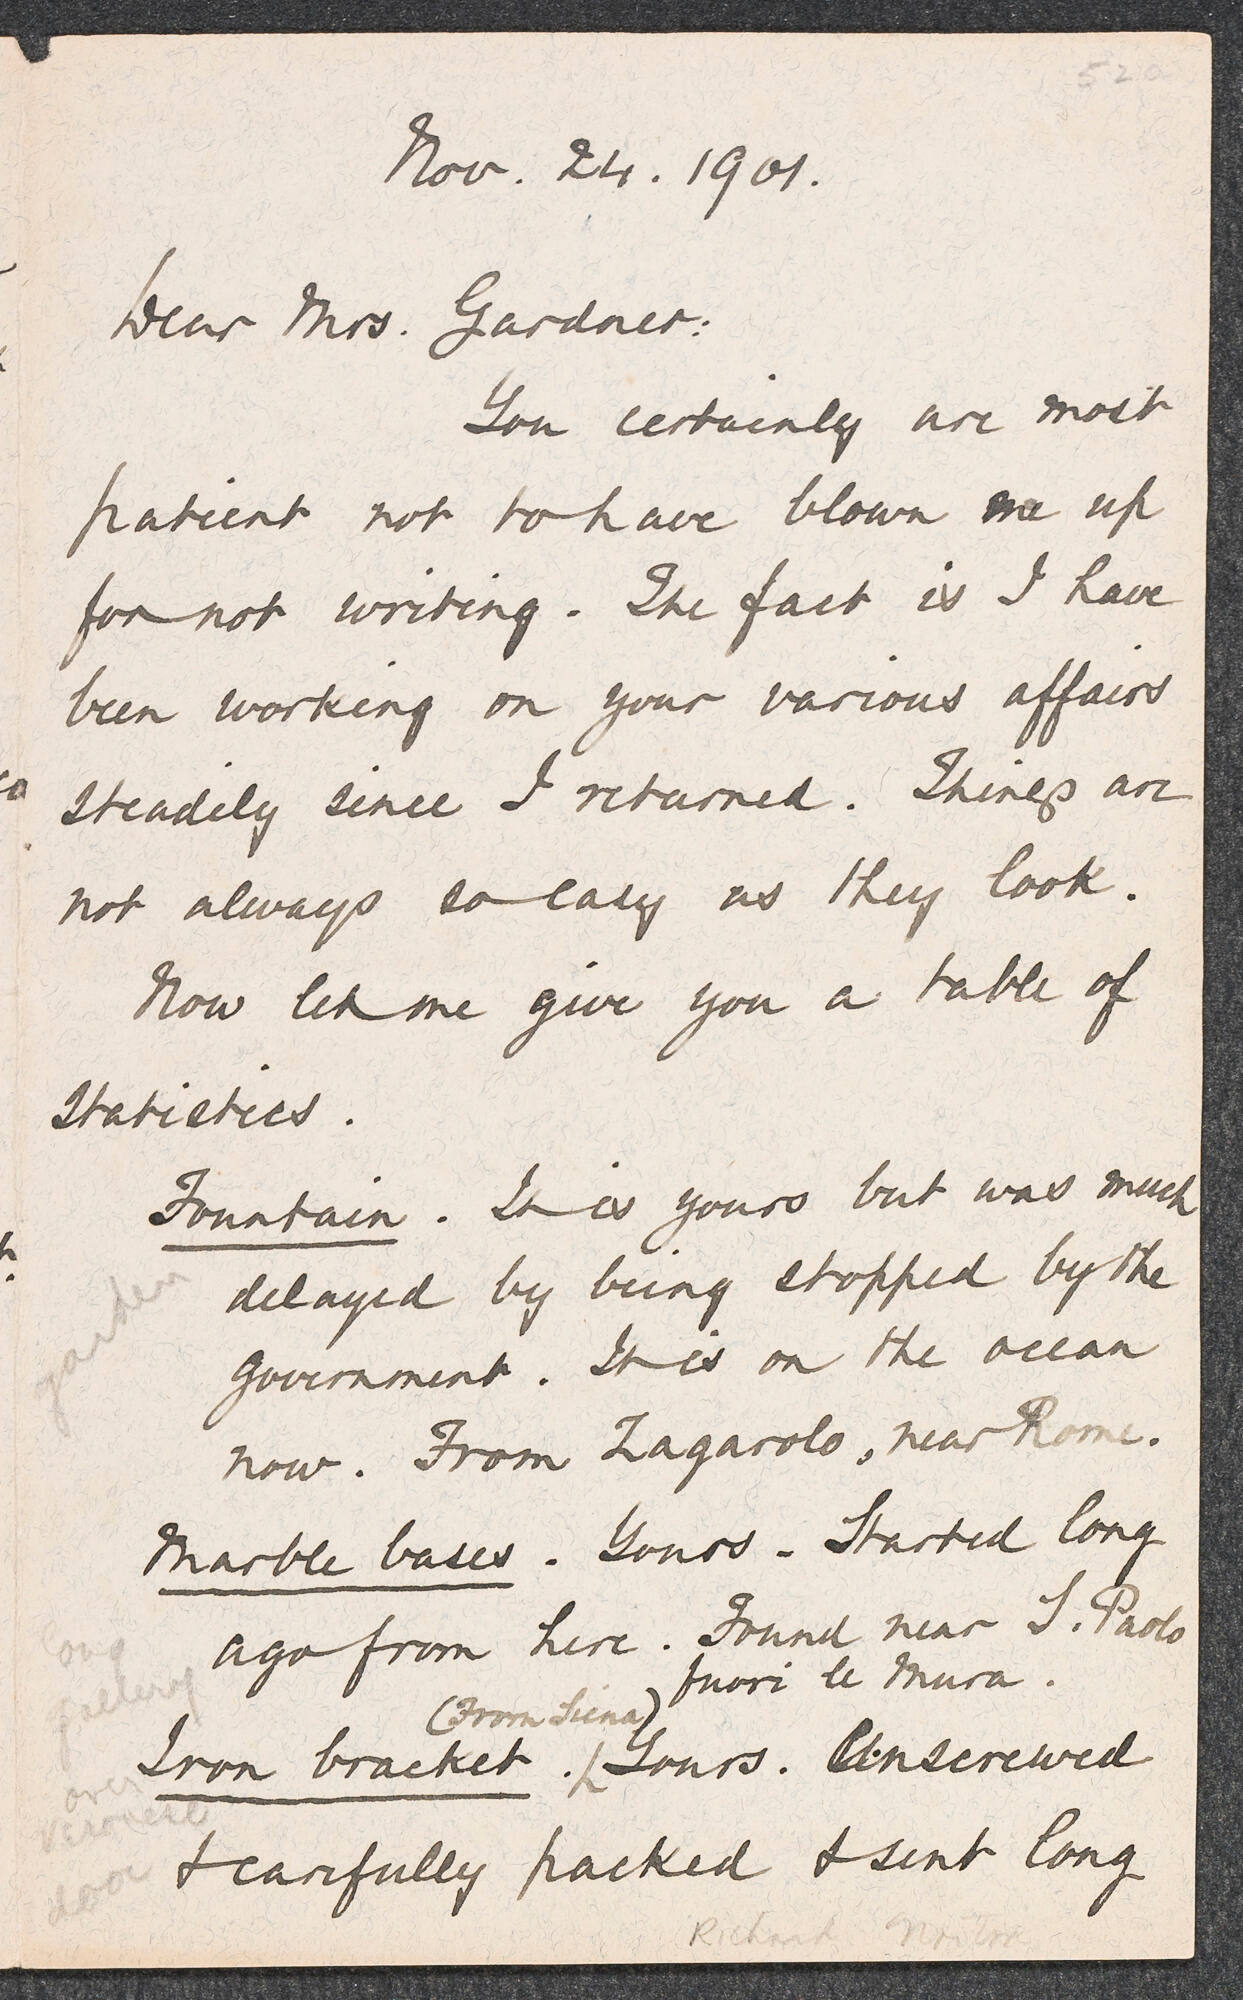 520
Nov. 24. 1901.
Dear Mrs. Gardner:
You certainly are most
patient not to have blown me up
for not writing. The fact is I have
been working on your various affairs
steadily since I returned. Things are
not always so easy as they look.
Now let me give you a table of
statistics.
Fountain. It is yours but was much
delayed by being stopped by the
government. It is on the ocean
now. From Zagarolo, near Rome.
garden
Marble bases. Yours. Started long
ago from here. Found near S. Paolo
fuori le Mura.
(From Siena)
Iron bracket. Yours. Unscrewed
& carefully packed & sent long
long
gallery
over
Veronese
door
Richard Norton